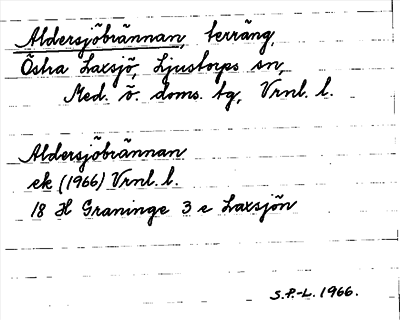 Aldersjöbrännan, terräng,
Östra Laxsjö, Ljustorps sn,
Med. v. doms. tg, Vrnl. l.
Aldersjöbrännan
ek (1966) Vrnl. l.
18 H Graninge 3 e Laxsjön
S.P.-L. 1966.